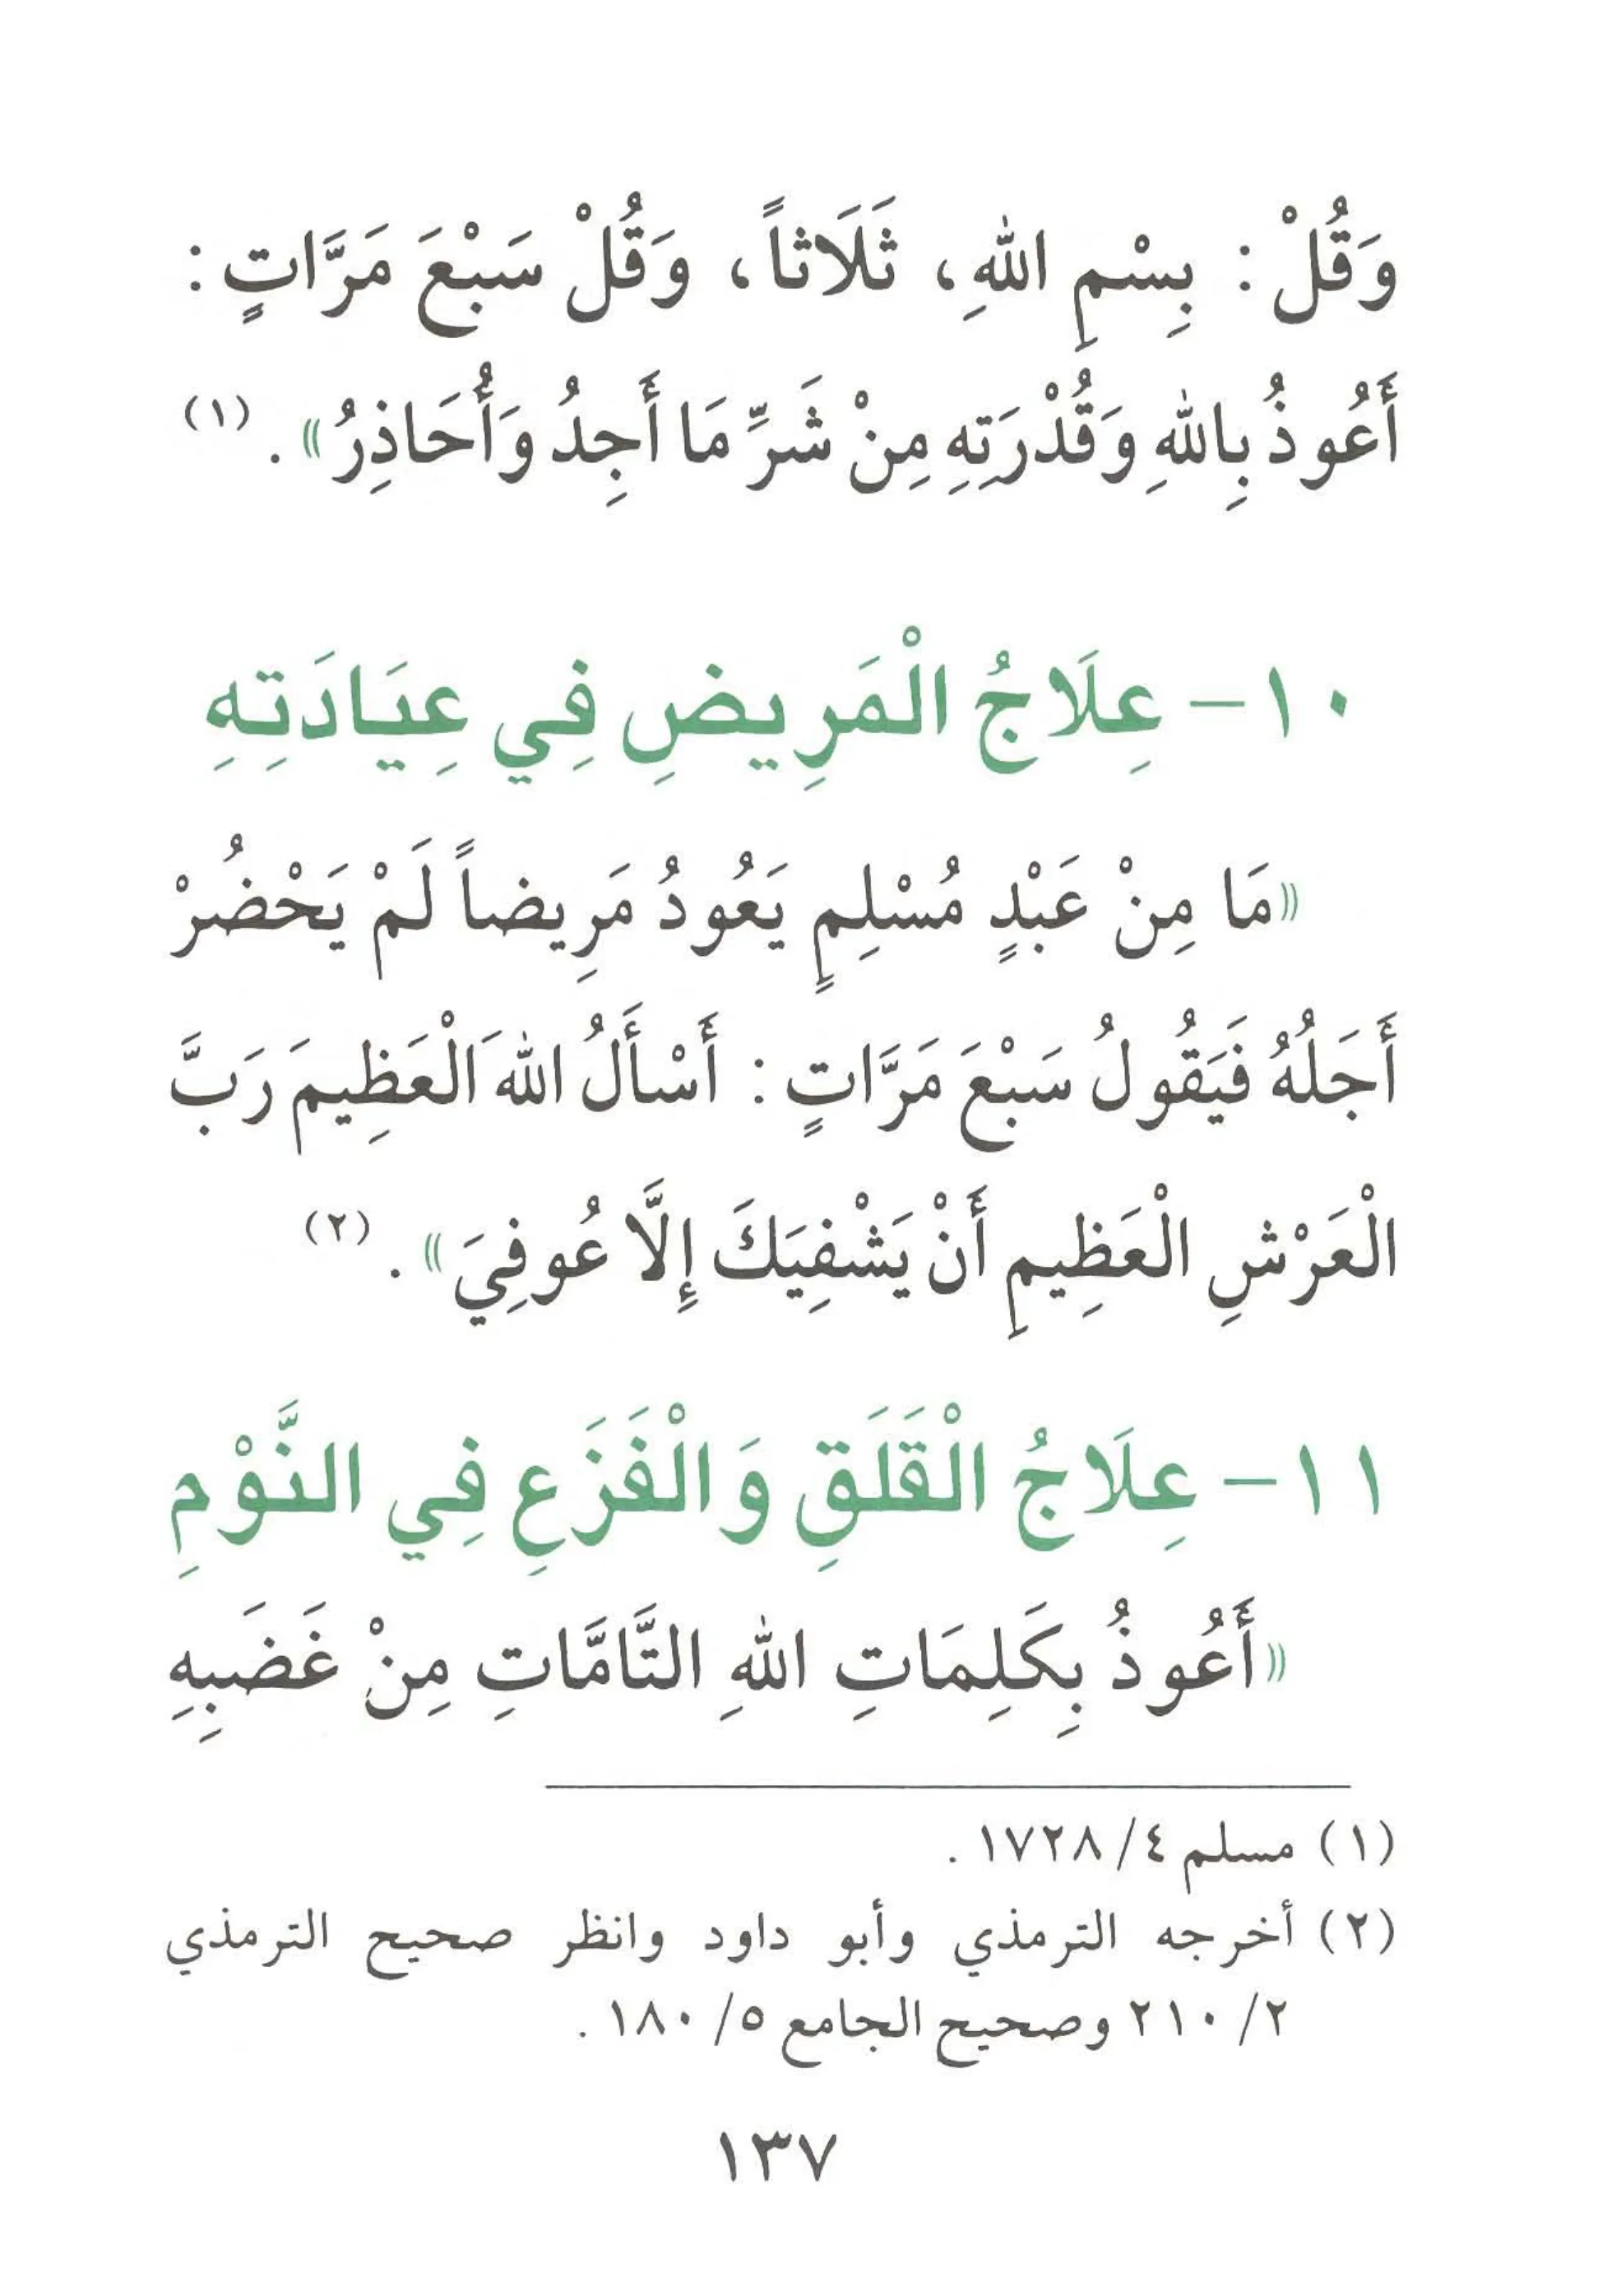 وَقُلْ : بِسْمِ اللهِ، ثَلَاثاً، وَقُلْ سَبْعَ مَرَّاتٍ :
أَعُوذُ بِاللهِ وَقُدْرَتِهِ مِنْ شَرِّ مَا أَجِدُ وَأُحَاذِرُ» . (١)
١٠- عِلَاجُ الْمَرِيضِ فِي عِيَادَتِهِ
«مَا مِنْ عَبْدٍ مُسْلِمٍ يَعُودُ مَرِيضاً لَمْ يَحْضُرْ
أَجَلُهُ فَيَقُولُ سَبْعَ مَرَّاتٍ : أَسْأَلُ اللهَ الْعَظِيمَ رَبَّ
الْعَرْشِ الْعَظِيمِ أَنْ يَشْفِيَكَ إِلَّا عُوفِيَ» . (٢)
١١- عِلَاجُ الْقَلَقِ وَالْفَزَعِ فِي النَّوْمِ
«أَعُوذُ بِكَلِمَاتِ اللهِ التَّامَّاتِ مِنْ غَضَبِهِ
(١) مسلم ٤/ ١٧٢٨ .
(٢) أخرجه الترمذي وأبو داود وانظر صحيح الترمذي
٢/ ٢١٠ وصحيح الجامع ٥/ ١٨٠ .
١٣٧